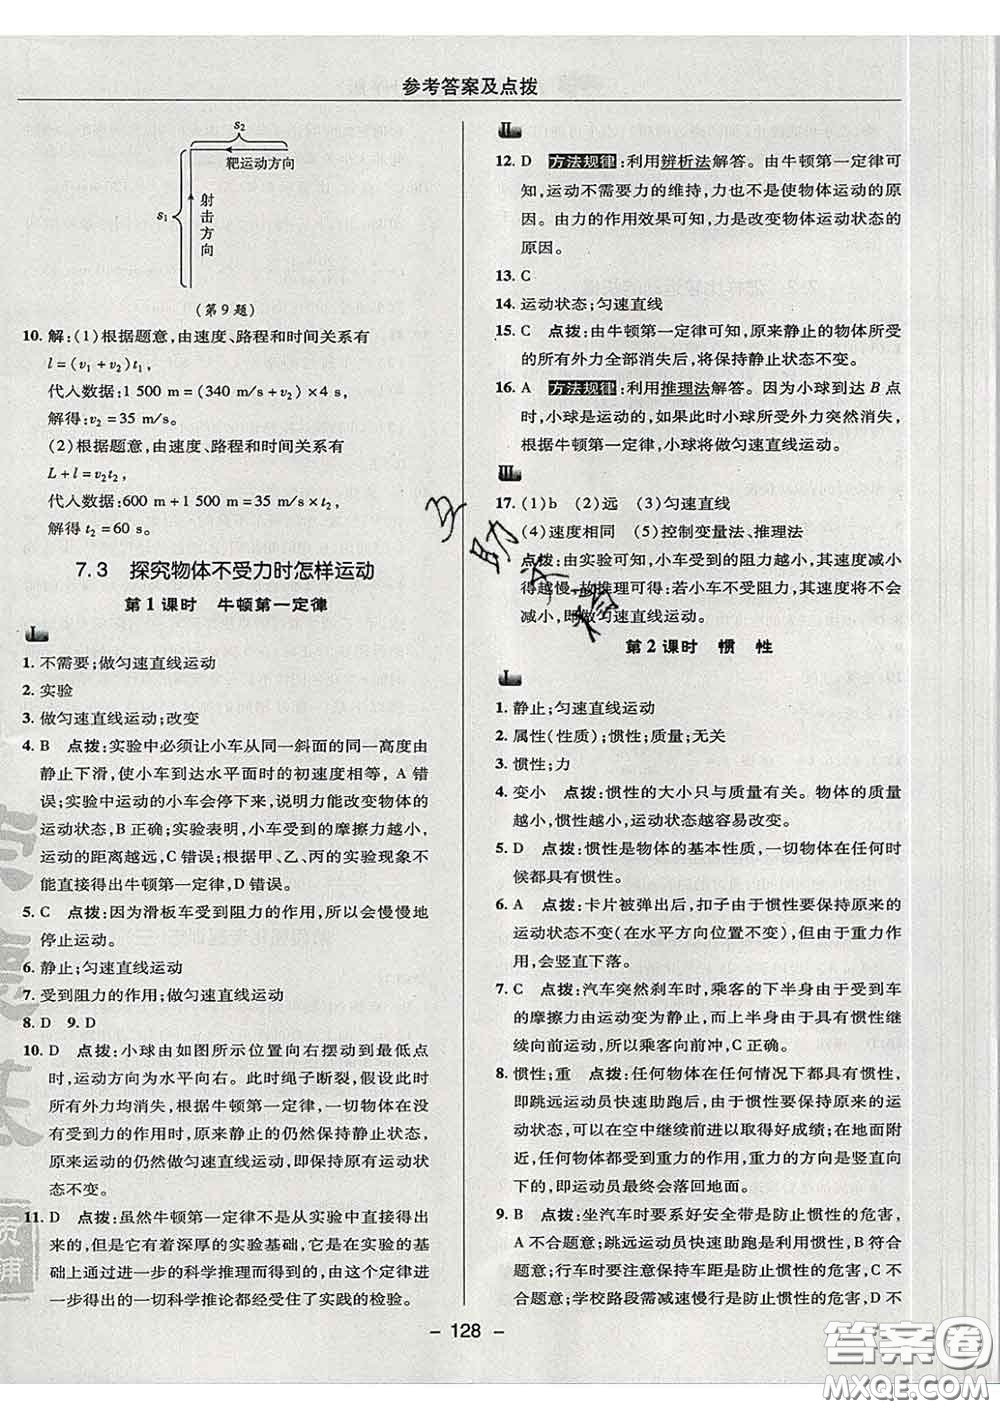 参考答案及点拨
s₂
靶运动方向
s₁
射击方向
(第 9 题)
10. 解:(1)根据题意,由速度、路程和时间关系有
l=(v₁+v₂)t₁,
代入数据:1 500 m=(340 m/s+v₂)×4 s,
解得:v₂=35 m/s。
(2)根据题意,由速度、路程和时间关系有
L+l=v₂t₂,
代入数据:600 m+1 500 m=35 m/s×t₂,
解得 t₂=60 s。
7.3 探究物体不受力时怎样运动
第 1 课时 牛顿第一定律
Ⅰ
1. 不需要;做匀速直线运动
2. 实验
3. 做匀速直线运动;改变
4. B 点拨:实验中必须让小车从同一斜面的同一高度由
静止下滑,使小车到达水平面时的初速度相等,A 错
误;实验中运动的小车会停下来,说明力能改变物体的
运动状态,B 正确;实验表明,小车受到的摩擦力越小,
运动的距离越远,C 错误;根据甲、乙、丙的实验现象不
能直接得出牛顿第一定律,D 错误。
5. C 点拨:因为滑板车受到阻力的作用,所以会慢慢地
停止运动。
6. 静止;匀速直线运动
7. 受到阻力的作用;做匀速直线运动
8. D 9. D
10. D 点拨:小球由如图所示位置向右摆动到最低点
时,运动方向为水平向右。此时绳子断裂,假设此时
所有外力均消失,根据牛顿第一定律,一切物体在没
有受到力的作用时,原来静止的仍然保持静止状态,
原来运动的仍然做匀速直线运动,即保持原有运动状
态不变。
11. D 点拨:虽然牛顿第一定律不是从实验中直接得出
来的,但是它有着深厚的实验基础,它是在实验的基
础上通过进一步的科学推理而得到的,由这个定律进
一步得出的一切科学推论都经受住了实践的检验。
Ⅱ
12. D 方法规律:利用辨析法解答。由牛顿第一定律可
知,运动不需要力的维持,力也不是使物体运动的原
因。由力的作用效果可知,力是改变物体运动状态的
原因。
13. C
14. 运动状态;匀速直线
15. C 点拨:由牛顿第一定律可知,原来静止的物体所受
的所有外力全部消失后,将保持静止状态不变。
16. A 方法规律:利用推理法解答。因为小球到达 B 点
时,小球是运动的,如果此时小球所受外力突然消失,
根据牛顿第一定律,小球将做匀速直线运动。
Ⅲ
17. (1)b (2)远 (3)匀速直线
(4)速度相同 (5)控制变量法、推理法
点拨:由实验可知,小车受到的阻力越小,其速度减小
得越慢,故推理可得:若小车不受阻力,其速度将不会
减小,即做匀速直线运动。
第 2 课时 惯 性
Ⅰ
1. 静止;匀速直线运动
2. 属性(性质);惯性;质量;无关
3. 惯性;力
4. 变小 点拨:惯性的大小只与质量有关。物体的质量
越小,惯性越小,运动状态越容易改变。
5. D 点拨:惯性是物体的基本性质,一切物体在任何时
候都具有惯性。
6. A 点拨:卡片被弹出后,扣子由于惯性要保持原来的
运动状态不变(在水平方向位置不变),但由于重力作
用,会竖直下落。
7. C 点拨:汽车突然刹车时,乘客的下半身由于受到车
的摩擦力由运动变为静止,而上半身由于具有惯性继
续向前运动,所以乘客向前冲,C 正确。
8. 惯性;重 点拨:任何物体在任何情况下都具有惯性,
即跳远运动员快速助跑后,由于惯性要保持原来的运
动状态,可以在空中继续前进以取得好成绩;在地面附
近,任何物体都受到重力的作用,重力的方向是竖直向
下的,即运动员最终会落回地面。
9. B 点拨:坐汽车时要系好安全带是防止惯性的危害,
A 不合题意;跳远运动员快速助跑是利用惯性,B 符合
题意;行车时要注意保持车距是防止惯性的危害,C 不
合题意;学校路段需减速慢行是防止惯性的危害,D 不
- 128 -
答案圈
MXQE.COM